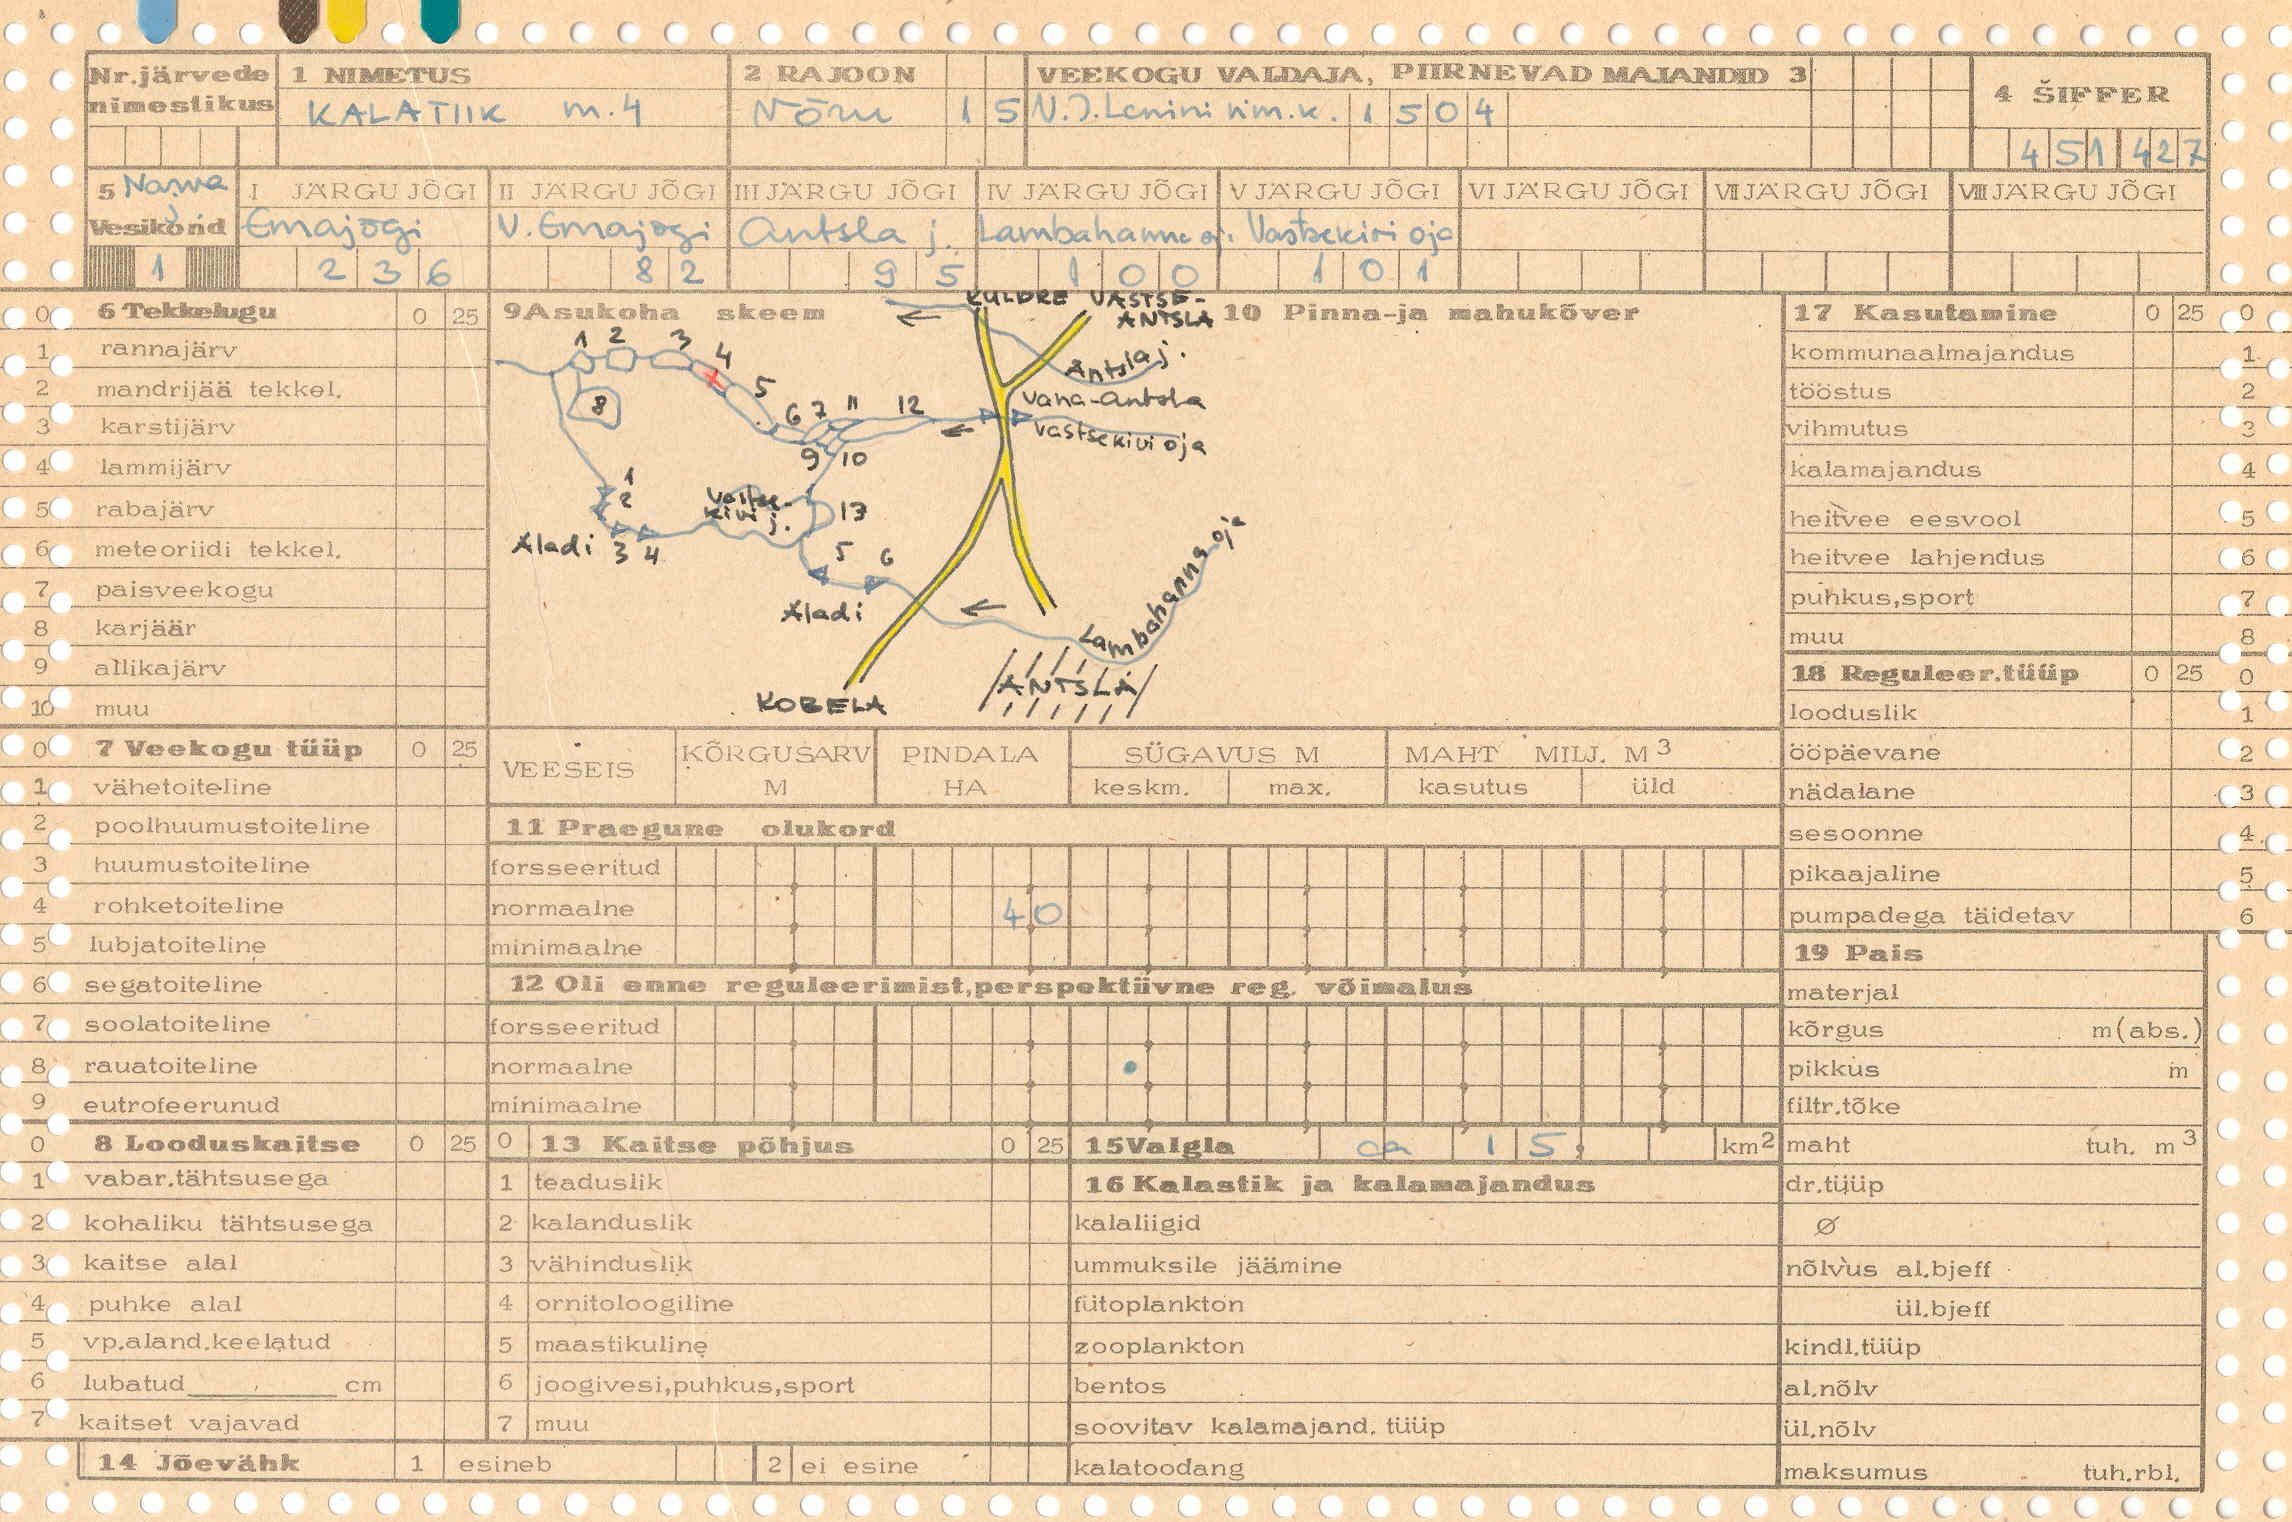 Nr.järvede nimestikus
1 NIMETUS
KALATIIK m.4
2 RAJOON
Võru 15
VEEKOGU VALDAJA, PIIRNEVAD MAJANDID 3
V.J.Lenini nim.k. 1504
4 ŠIFFER
451427
5 Narva j.
Vesikond
1
I JÄRGU JÕGI
Emajõgi
236
II JÄRGU JÕGI
V.Emajõgi
82
III JÄRGU JÕGI
Antsla j.
95
IV JÄRGU JÕGI
Lambahanna oj.
100
V JÄRGU JÕGI
Vastsekivi oja
101
VI JÄRGU JÕGI
VII JÄRGU JÕGI
VIII JÄRGU JÕGI
0 6 Tekkelugu 0 25
1 rannajärv
2 mandrijää tekkel.
3 karstijärv
4 lammijärv
5 rabajärv
6 meteoriidi tekkel.
7 paisveekogu
8 karjäär
9 allikajärv
10 muu
0 7 Veekogu tüüp 0 25
1 vähetoiteline
2 poolhuumustoiteline
3 huumustoiteline
4 rohketoiteline
5 lubjatoiteline
6 segatoiteline
7 soolatoiteline
8 rauatoiteline
9 eutrofeerunud
0 8 Looduskaitse 0 25
1 vabar.tähtsusega
2 kohaliku tähtsusega
3 kaitse alal
4 puhke alal
5 vp.aland.keelatud
6 lubatud______ cm
7 kaitset vajavad
14 Jõevähk 1 esineb 2 ei esine
9 Asukoha skeem
KULDRE VASTSE-
ANTSLA
1 2 3 4 5 6 7 11 12
8
9 10
Antsla j.
Vana-Antsla
Vastsekivi oja
1
2
Vastse-
kivi j.
13
Äladi 3 4
5 6
Äladi
Lambahanna oja
ANTSLA
KOBELA
10 Pinna-ja mahukõver
VEESEIS
KÕRGUSARV M
PINDALA HA
SÜGAVUS M
keskm. max.
MAHT MILJ. M3
kasutus üld
11 Praegune olukord
forsseeritud
normaalne 40
minimaalne
12 Oli enne reguleerimist,perspektiivne reg. võimalus
forsseeritud
normaalne
minimaalne
0 13 Kaitse põhjus 0 25
1 teaduslik
2 kalanduslik
3 vähinduslik
4 ornitoloogiline
5 maastikuline
6 joogivesi,puhkus,sport
7 muu
15 Valgla ca 15, km2
16 Kalastik ja kalamajandus
kalaliigid
ummuksile jäämine
fütoplankton
zooplankton
bentos
soovitav kalamajand. tüüp
kalatoodang
17 Kasutamine 0 25 0
kommunaalmajandus 1
tööstus 2
vihmutus 3
kalamajandus 4
heitvee eesvool 5
heitvee lahjendus 6
puhkus,sport 7
muu 8
18 Reguleer.tüüp 0 25 0
looduslik 1
ööpäevane 2
nädalane 3
sesoonne 4
pikaajaline 5
pumpadega täidetav 6
19 Pais
materjal
kõrgus m(abs.)
pikkus m
filtr.tõke
maht tuh. m3
dr.tüüp
Ø
nõlvus al.bjeff
ül.bjeff
kindl.tüüp
al.nõlv
ül.nõlv
maksumus tuh.rbl.